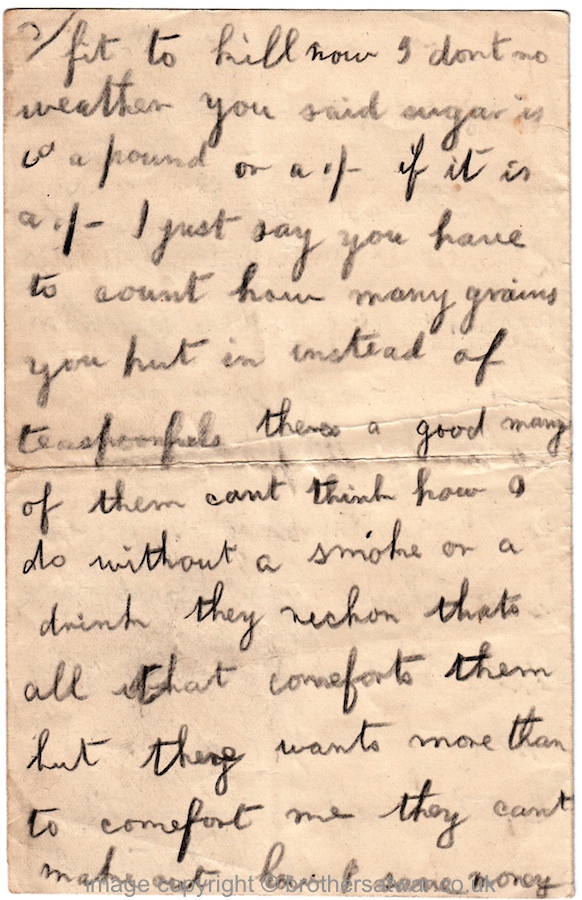 2/ fit to kill now I dont no
weather you said sugar is
a pound or a 1/- if it is
a 1/- I just say you have
to count how many grains
you put in instead of
teaspoonfuls theres a good many
of them cant think how I
do without a smoke or a
drink they reckon thats
all that comeforts them
but they wants more than
to comefort me they cant
make out how I save money
image copyright © brothersatwar.co.uk